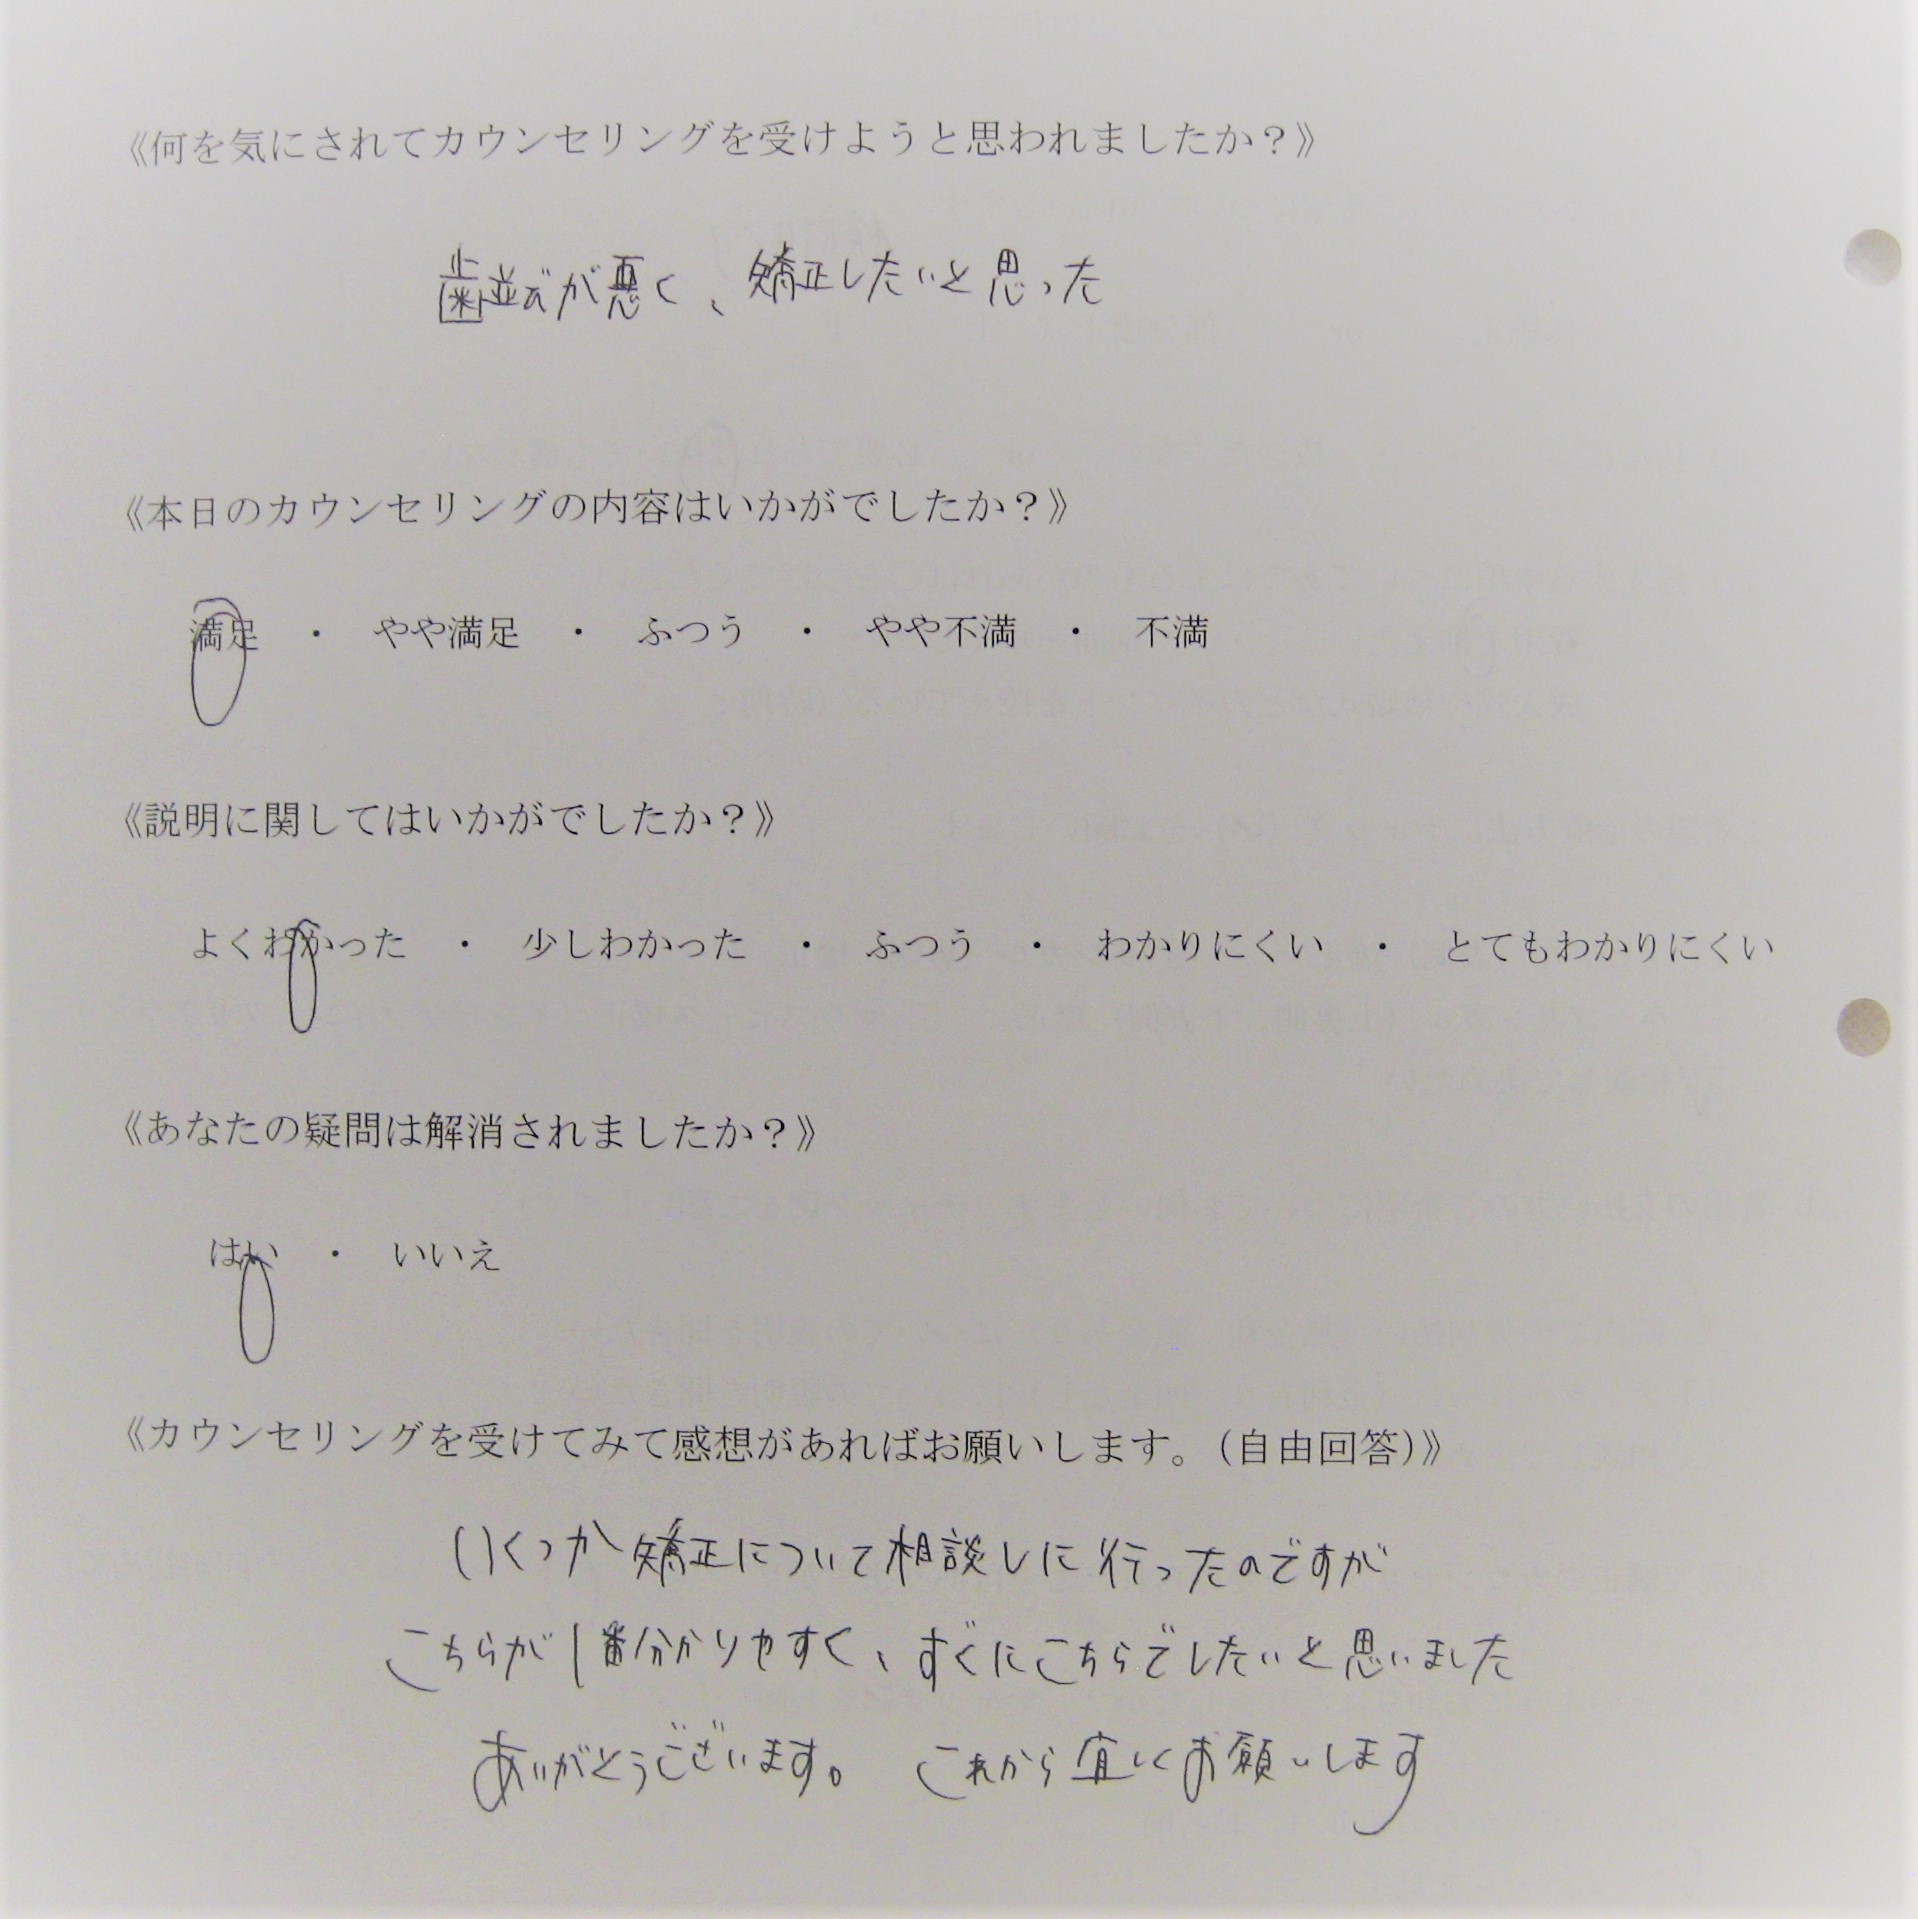 《何を気にされてカウンセリングを受けようと思われましたか？》
歯並びが悪く、矯正したいと思った
《本日のカウンセリングの内容はいかがでしたか？》
満足　・　やや満足　・　ふつう　・　やや不満　・　不満
《説明に関してはいかがでしたか？》
よくわかった　・　少しわかった　・　ふつう　・　わかりにくい　・　とてもわかりにくい
《あなたの疑問は解消されましたか？》
はい　・　いいえ
《カウンセリングを受けてみて感想があればお願いします。（自由回答）》
いくつか矯正について相談しに行ったのですが
こちらが1番分かりやすく、すぐにこちらでしたいと思いました
ありがとうございます。　これから宜しくお願いします